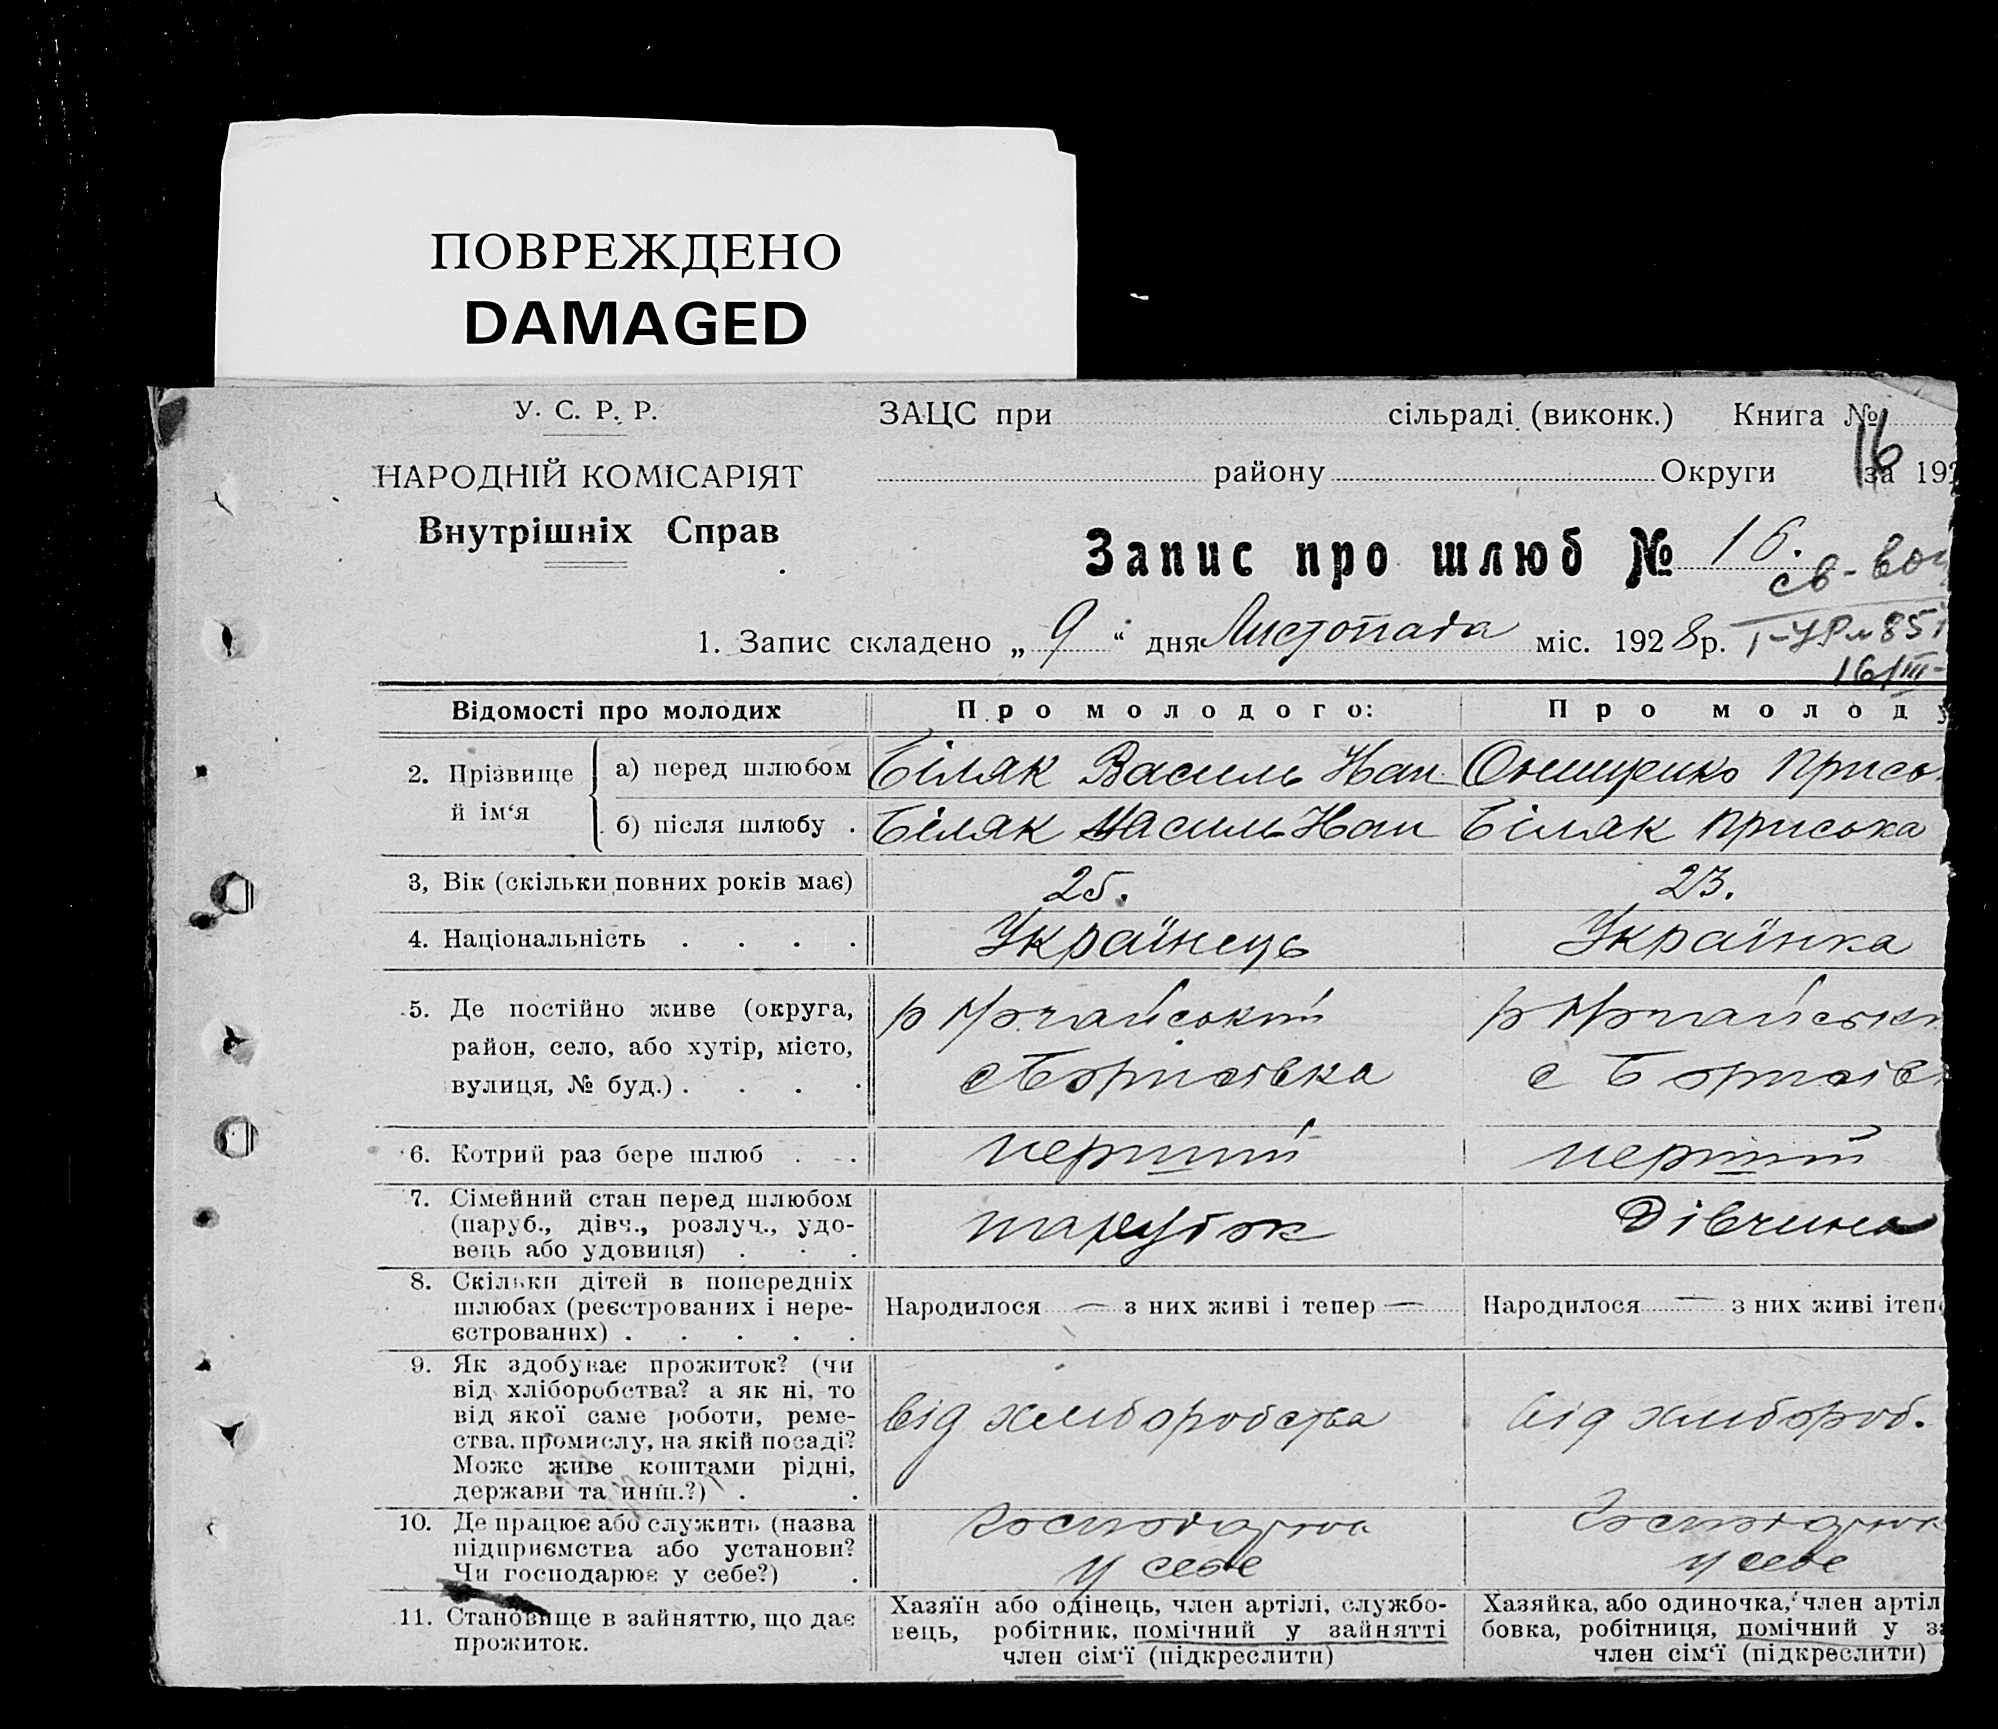 ПОВРЕЖДЕНО
DAMAGED
У. С. Р. Р.
НАРОДНІЙ КОМІСАРІЯТ
Внутрішніх Справ
ЗАЦС при сільраді (виконк.) Книга №
16
району Округи за 192
Запис про шлюб № 16.
св-во
1. Запис складено „ 9 “ дня Листопада міс. 1928 р.
16/III-
Відомості про молодих
Про молодого:
Про молоду
2. Прізвище й ім‘я
а) перед шлюбом
Біляк Василь Нап
Онищенко Присо
б) після шлюбу .
Біляк Василь Нап
Біляк Приська
3, Вік (скільки повних років має)
25.
23.
4. Національність . . . .
Українець
Українка
5. Де постійно живе (округа,
район, село, або хутір, місто,
вулиця, № буд.) . . . .
с Борисівка
с Борисів
6. Котрий раз бере шлюб . . .
перший
перший
7. Сімейний стан перед шлюбом
(паруб., дівч., розлуч., удо-
вець або удовиця) . . .
парубок
Дівчина
8. Скільки дітей в попередніх
шлюбах (реєстрованих і нере-
єстрованих) . . . . .
Народилося — з них живі і тепер —
Народилося — з них живі і теп
9. Як здобуває прожиток? (чи
від хліборобства? а як ні, то
від якої саме роботи, реме-
ства, промислу, на якій посаді?
Може живе коштами рідні,
держави та инш.?) . .
від хліборобства
від хлібороб.
10. Де працює або служить (назва
підприємства або установи?
Чи господарює у себе?) .
господарює
у себе
господарює
у себе
11. Становище в зайняттю, що дає
прожиток.
Хазяїн або одінець, член артілі, службо-
вець, робітник, помічний у зайнятті
член сім‘ї (підкреслити)
Хазяйка, або одиночка, член артіл
бовка, робітниця, помічний у за
член сім‘ї (підкреслити)